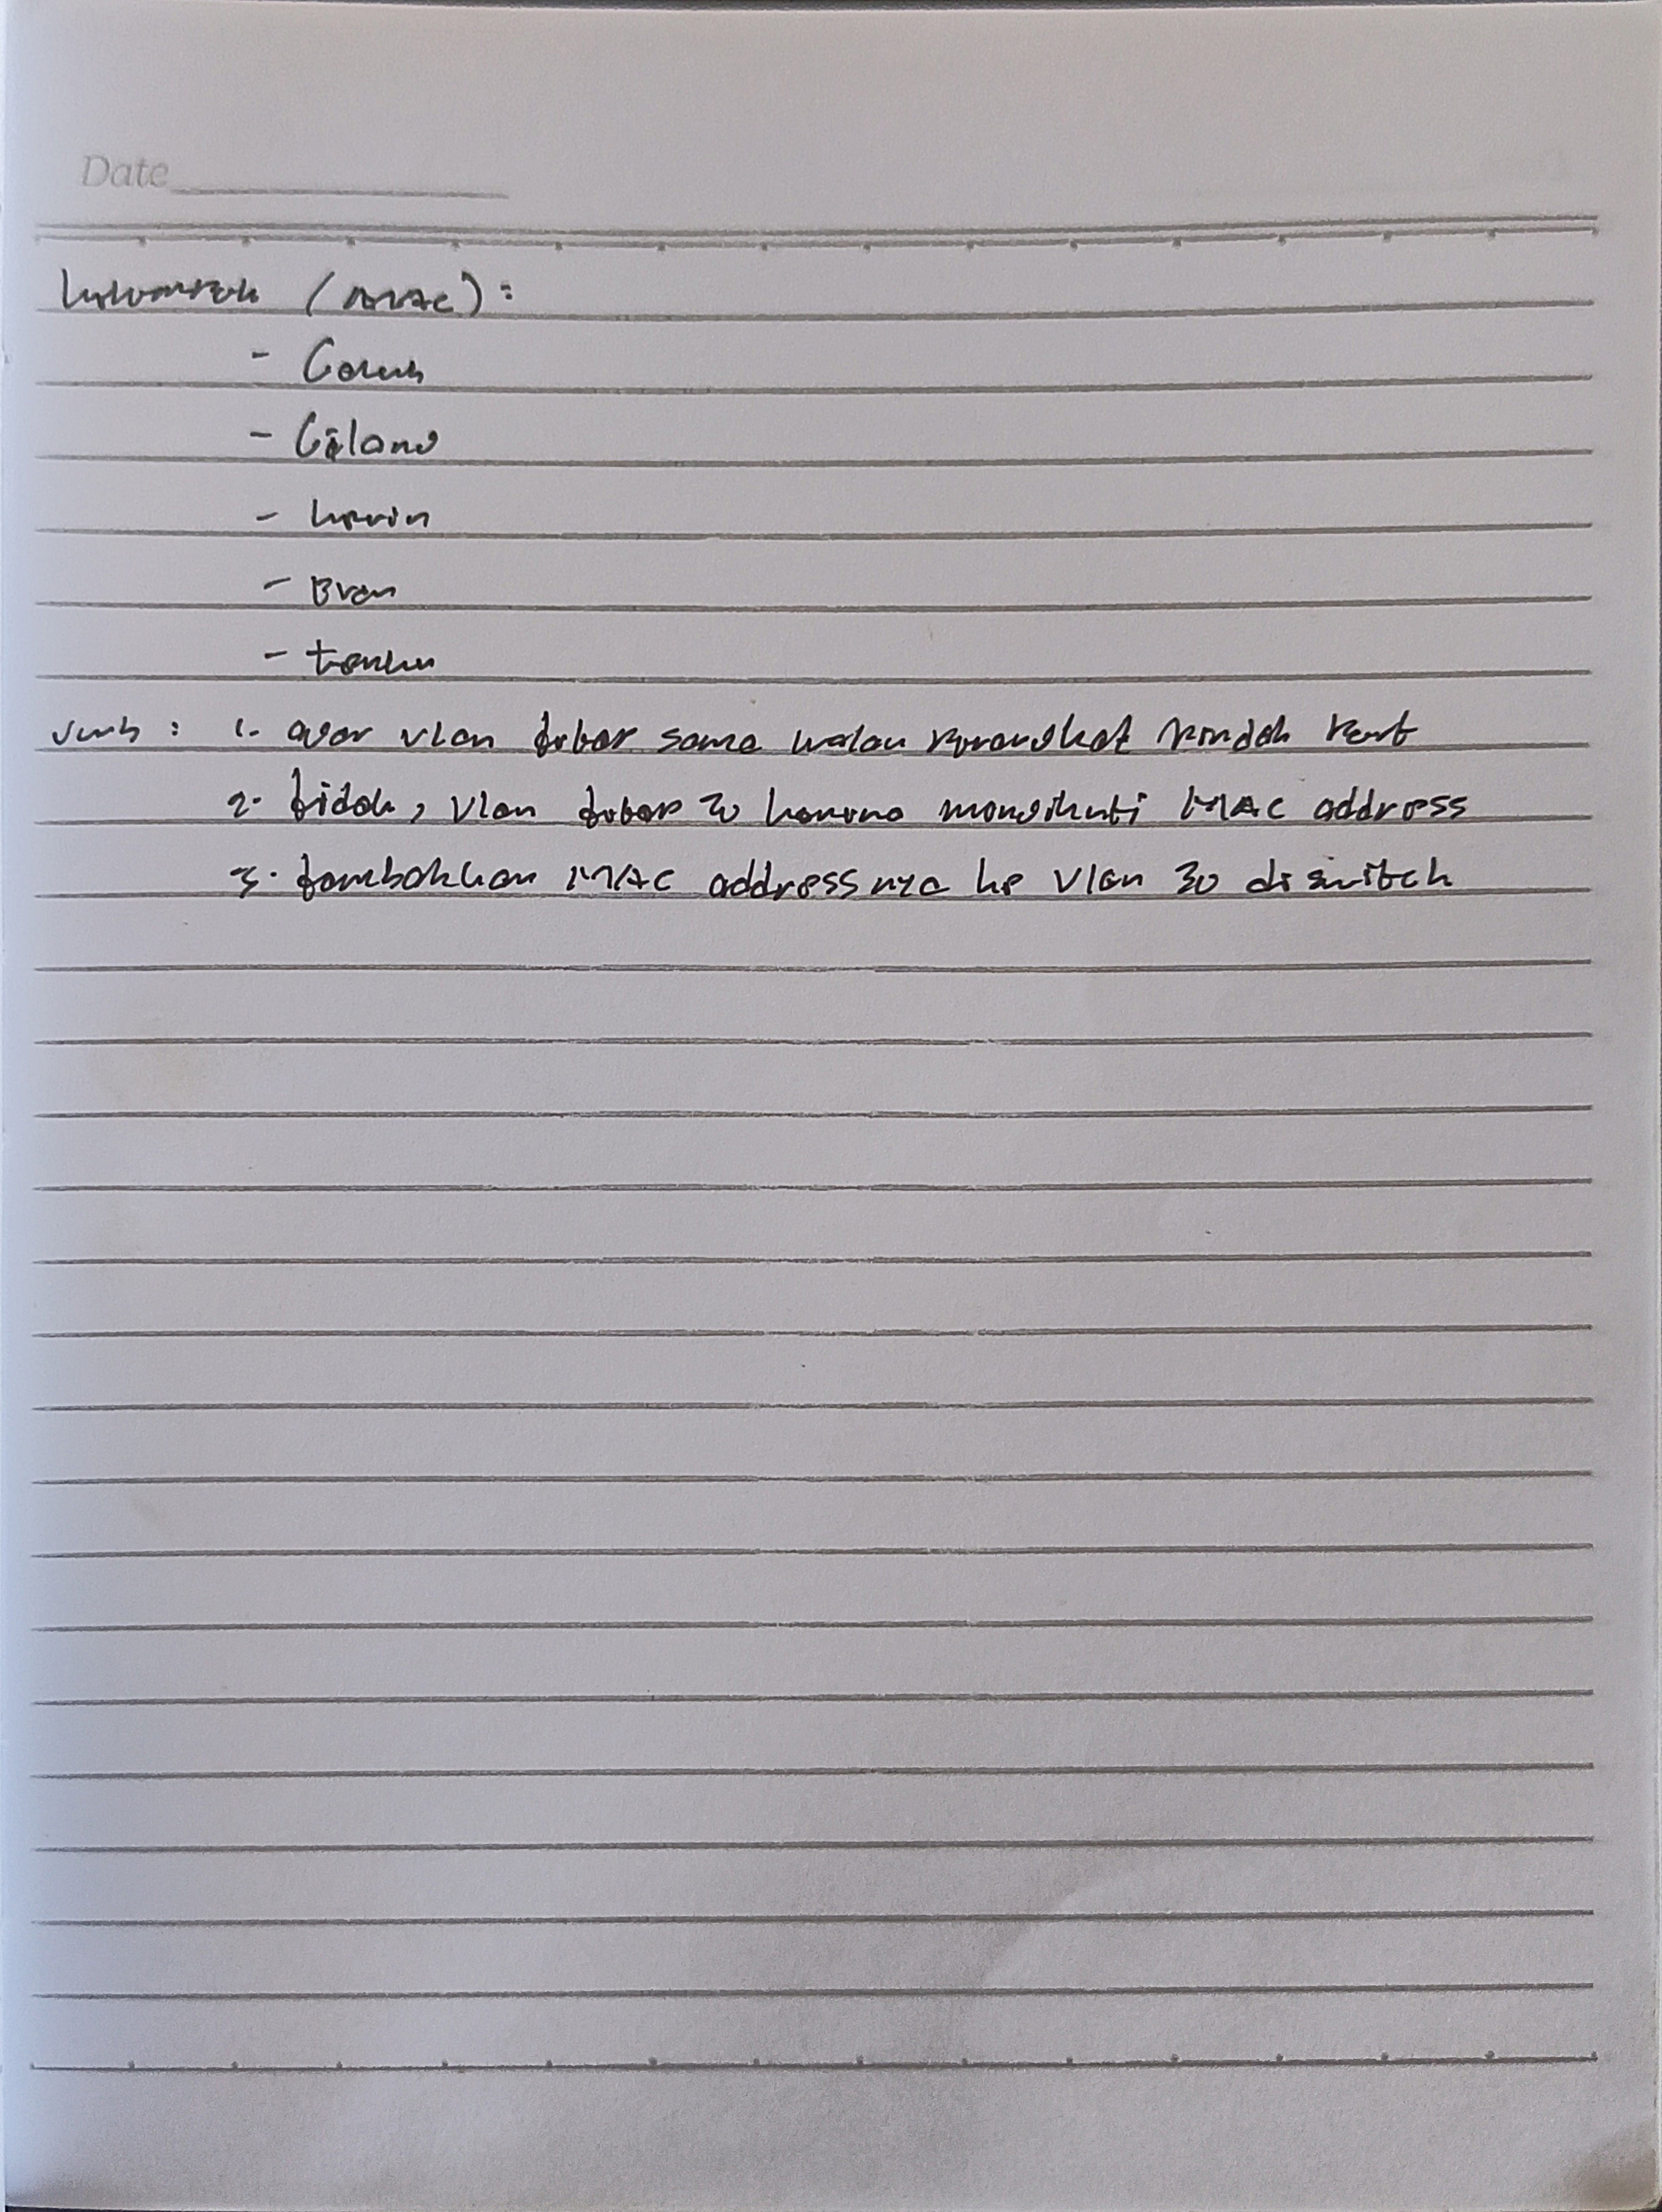 Date
Kelompok (MAC):
- Galuh
- Gilang
- Kevin
- Evan
- tanku
Jwb : 1. agar vlan tetap sama walau perangkat pindah Port
2. tidak, Vlan tetap 20 karena mengikuti MAC address
3. tambahkan MAC addressnya ke Vlan 30 di switch